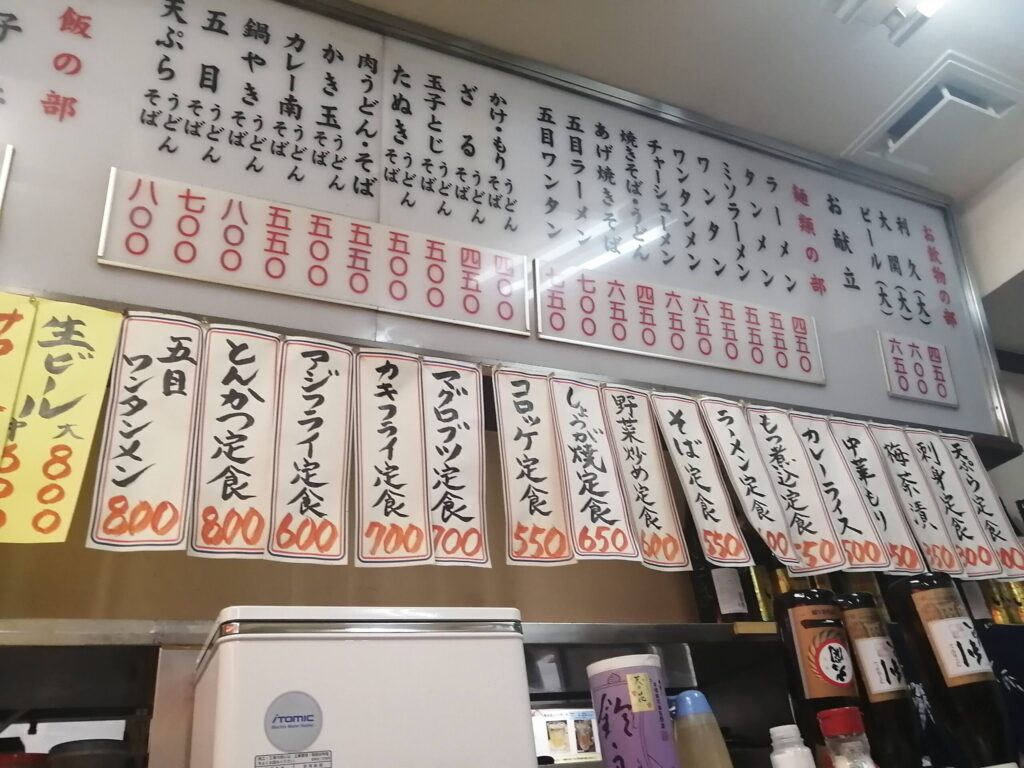 お飲物の部
利久(大)
大関(大)
ビール(大)
四五〇
六〇〇
六五〇
お献立
麺類の部
ラーメン
タンメン
ミソラーメン
ワンタン
ワンタンメン
チャーシューメン
焼きそば・うどん
あげ焼きそば
五目ラーメン
五目ワンタン
四五〇
五五〇
五五〇
五五〇
六五〇
六五〇
四五〇
六五〇
七〇〇
七五〇
かけ・もりうどんそば
ざるうどんそば
玉子とじうどんそば
たぬきうどんそば
肉うどん・そば
かき玉うどんそば
カレー南うどんそば
鍋やきうどんそば
五目うどんそば
天ぷらうどんそば
四〇〇
四五〇
五〇〇
五〇〇
五五〇
五〇〇
五五〇
八〇〇
七〇〇
八〇〇
飯の部
天ぷら定食
刺身定食
梅茶漬
中華もり
500
カレーライス
もつ煮込定食
ラーメン定食
そば定食
550
野菜炒め定食
600
しょうが焼定食
650
コロッケ定食
550
マグロブツ定食
700
カキフライ定食
700
アジフライ定食
600
とんかつ定食
800
五目
ワンタンメン
800
生ビール大
800
iTOMIC